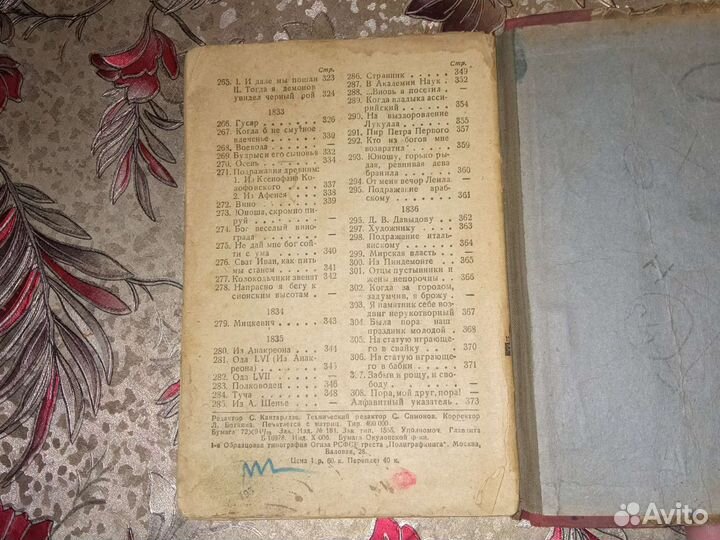 Стр.
265. I. И дале мы пошли 323
II. Тогда я демонов
увидел черный рой 324
1833
266. Гусар . . . . . . . 326
267. Когда б не смутное
влеченье . . . . . . 330
268. Воевода . . . . . . —
269. Будрыс и его сыновья 332
270. Осень . . . . . . . 334
271. Подражания древним:
1. Из Ксенофана Ко-
лофонского . . . . 337
2. Из Афенея . . . 338
272. Вино . . . . . . . 339
273. Юноша, скромно пи-
руй . . . . . . . . —
274. Бог веселый вино-
града . . . . . . . —
275. Не дай мне бог сой-
ти с ума . . . . . . 340
276. Сват Иван, как пить
мы станем . . . . . 341
277. Колокольчики звенят 342
278. Напрасно я бегу к
сионским высотам . —
1834
279. Мицкевич . . . . . 343
1835
280. Из Анакреона . . . 344
281. Ода LVI (Из Анак-
реона) . . . . . . .
282. Ода LVII . . . . . —
283. Полководец . . . . 346
284. Туча . . . . . . . 348
285. Из А. Шенье . . . —
Стр.
286. Странник . . . . . 349
287. В Академии Наук . 352
288. ...Вновь я посетил . —
289. Когда владыка асси-
рийский . . . . . . 354
290. На выздоровление
Лукулла . . . . . . 355
291. Пир Петра Первого 357
292. Кто из богов мне
возвратил . . . . . 359
293. Юношу, горько ры-
дая, ревнивая дева
бранила . . . . . . 360
294. От меня вечор Леила. —
295. Подражание араб-
скому . . . . . . . 361
1836
296. Д. В. Давыдову . . 362
297. Художнику . . . . 363
298. Подражание италь-
янскому . . . . . . 364
299. Мирская власть . . —
300. Из Пиндемонте . . 365
301. Отцы пустынники и
жены непорочны . . 365
302. Когда за городом,
задумчив, я брожу . —
303. Я памятник себе воз-
двиг нерукотворный 367
304. Была пора: наш
праздник молодой . 368
305. На статую играюще-
го в свайку . . . . 370
306. На статую играющего
в бабки . . . . . . 371
307. Забыв и рощу, и сво-
боду . . . . . . . . —
308. Пора, мой друг, пора! —
Алфавитный указатель . 373
Редактор С. Технический редактор С. Симонов. Корректор
Л. Печатается с матриц. Тир. 400 000.
Бумага Зак. Изд. № 184. Зак. тип. 1855. Уполномоч. Главлита
Б-10978. Инд. Х-006. Бумага Окуловской ф-ки.
1-я Образцовая типография Огиза РСФСР треста „Полиграфкнига". Москва,
Валовая, 28.
Цена 1 р. 60 к. Переплет 40 к.
195
Avito